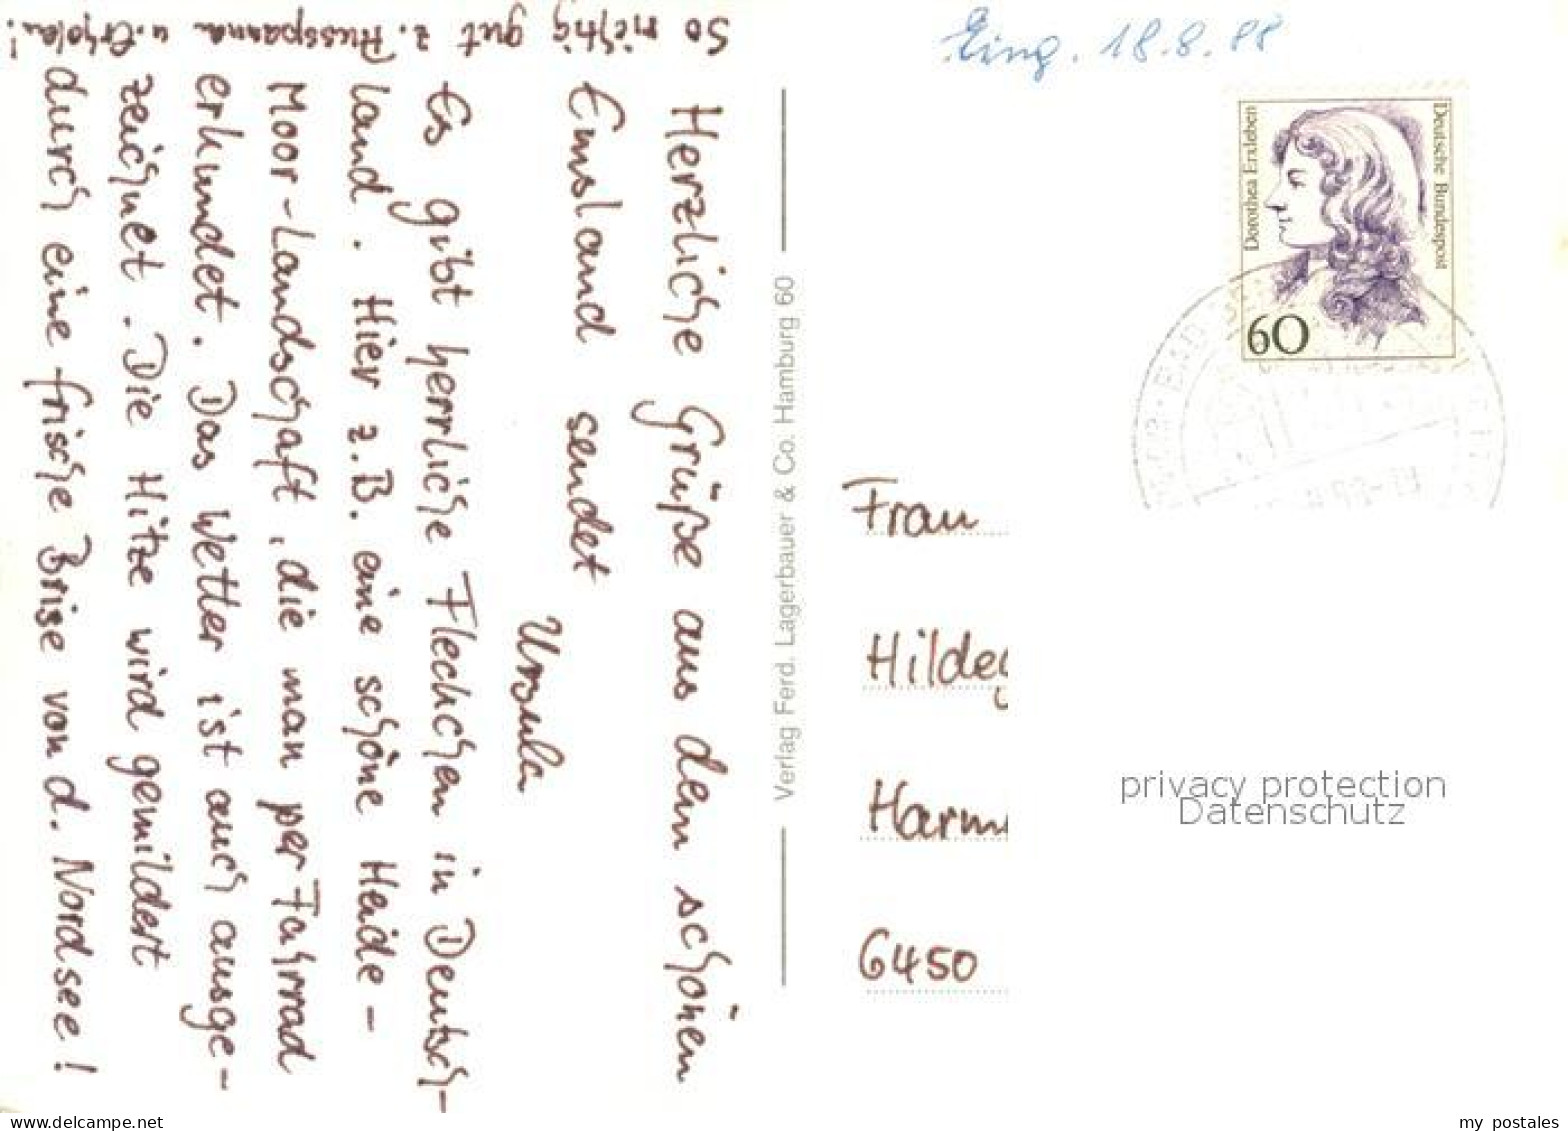 Herzliche Grüße aus dem schönen
Emsland sendet
Ursula
Es gibt herrliche Fleckchen in Deutsch-
land. Hier z.B. eine schöne Heide-
Moor-Landschaft, die man per Fahrrad
erkundet. Das Wetter ist auch ausge-
zeichnet. Die Hitze wird gemildert
durch eine frische Brise von d. Nordsee!
So richtig gut z. Ausspanna u.
Verlag Ferd. Lagerbauer & Co. Hamburg 60
Eing. 18.8.88
Deutsche Bundespost
Dorothea Erxleben
60
Frau
Hildeg
Harm
6450
privacy protection
Datenschutz
my postales